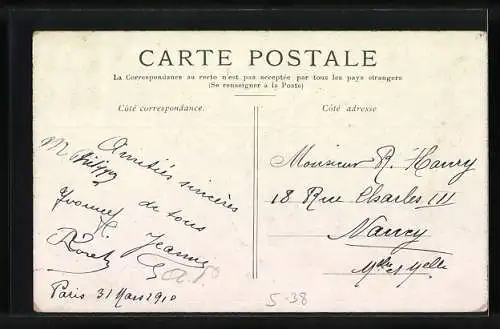 CARTE POSTALE
La Correspondance au recto n'est pas acceptée par tous les pays étrangers
(Se renseigner à la Poste)
Côté correspondance.
Côté adresse
Amitiés sincères
de tous
Yvonne
Jeanne
Paris 31 Mars 1910
Monsieur R. Haury
18 Rue Charles III
Nancy
5-38